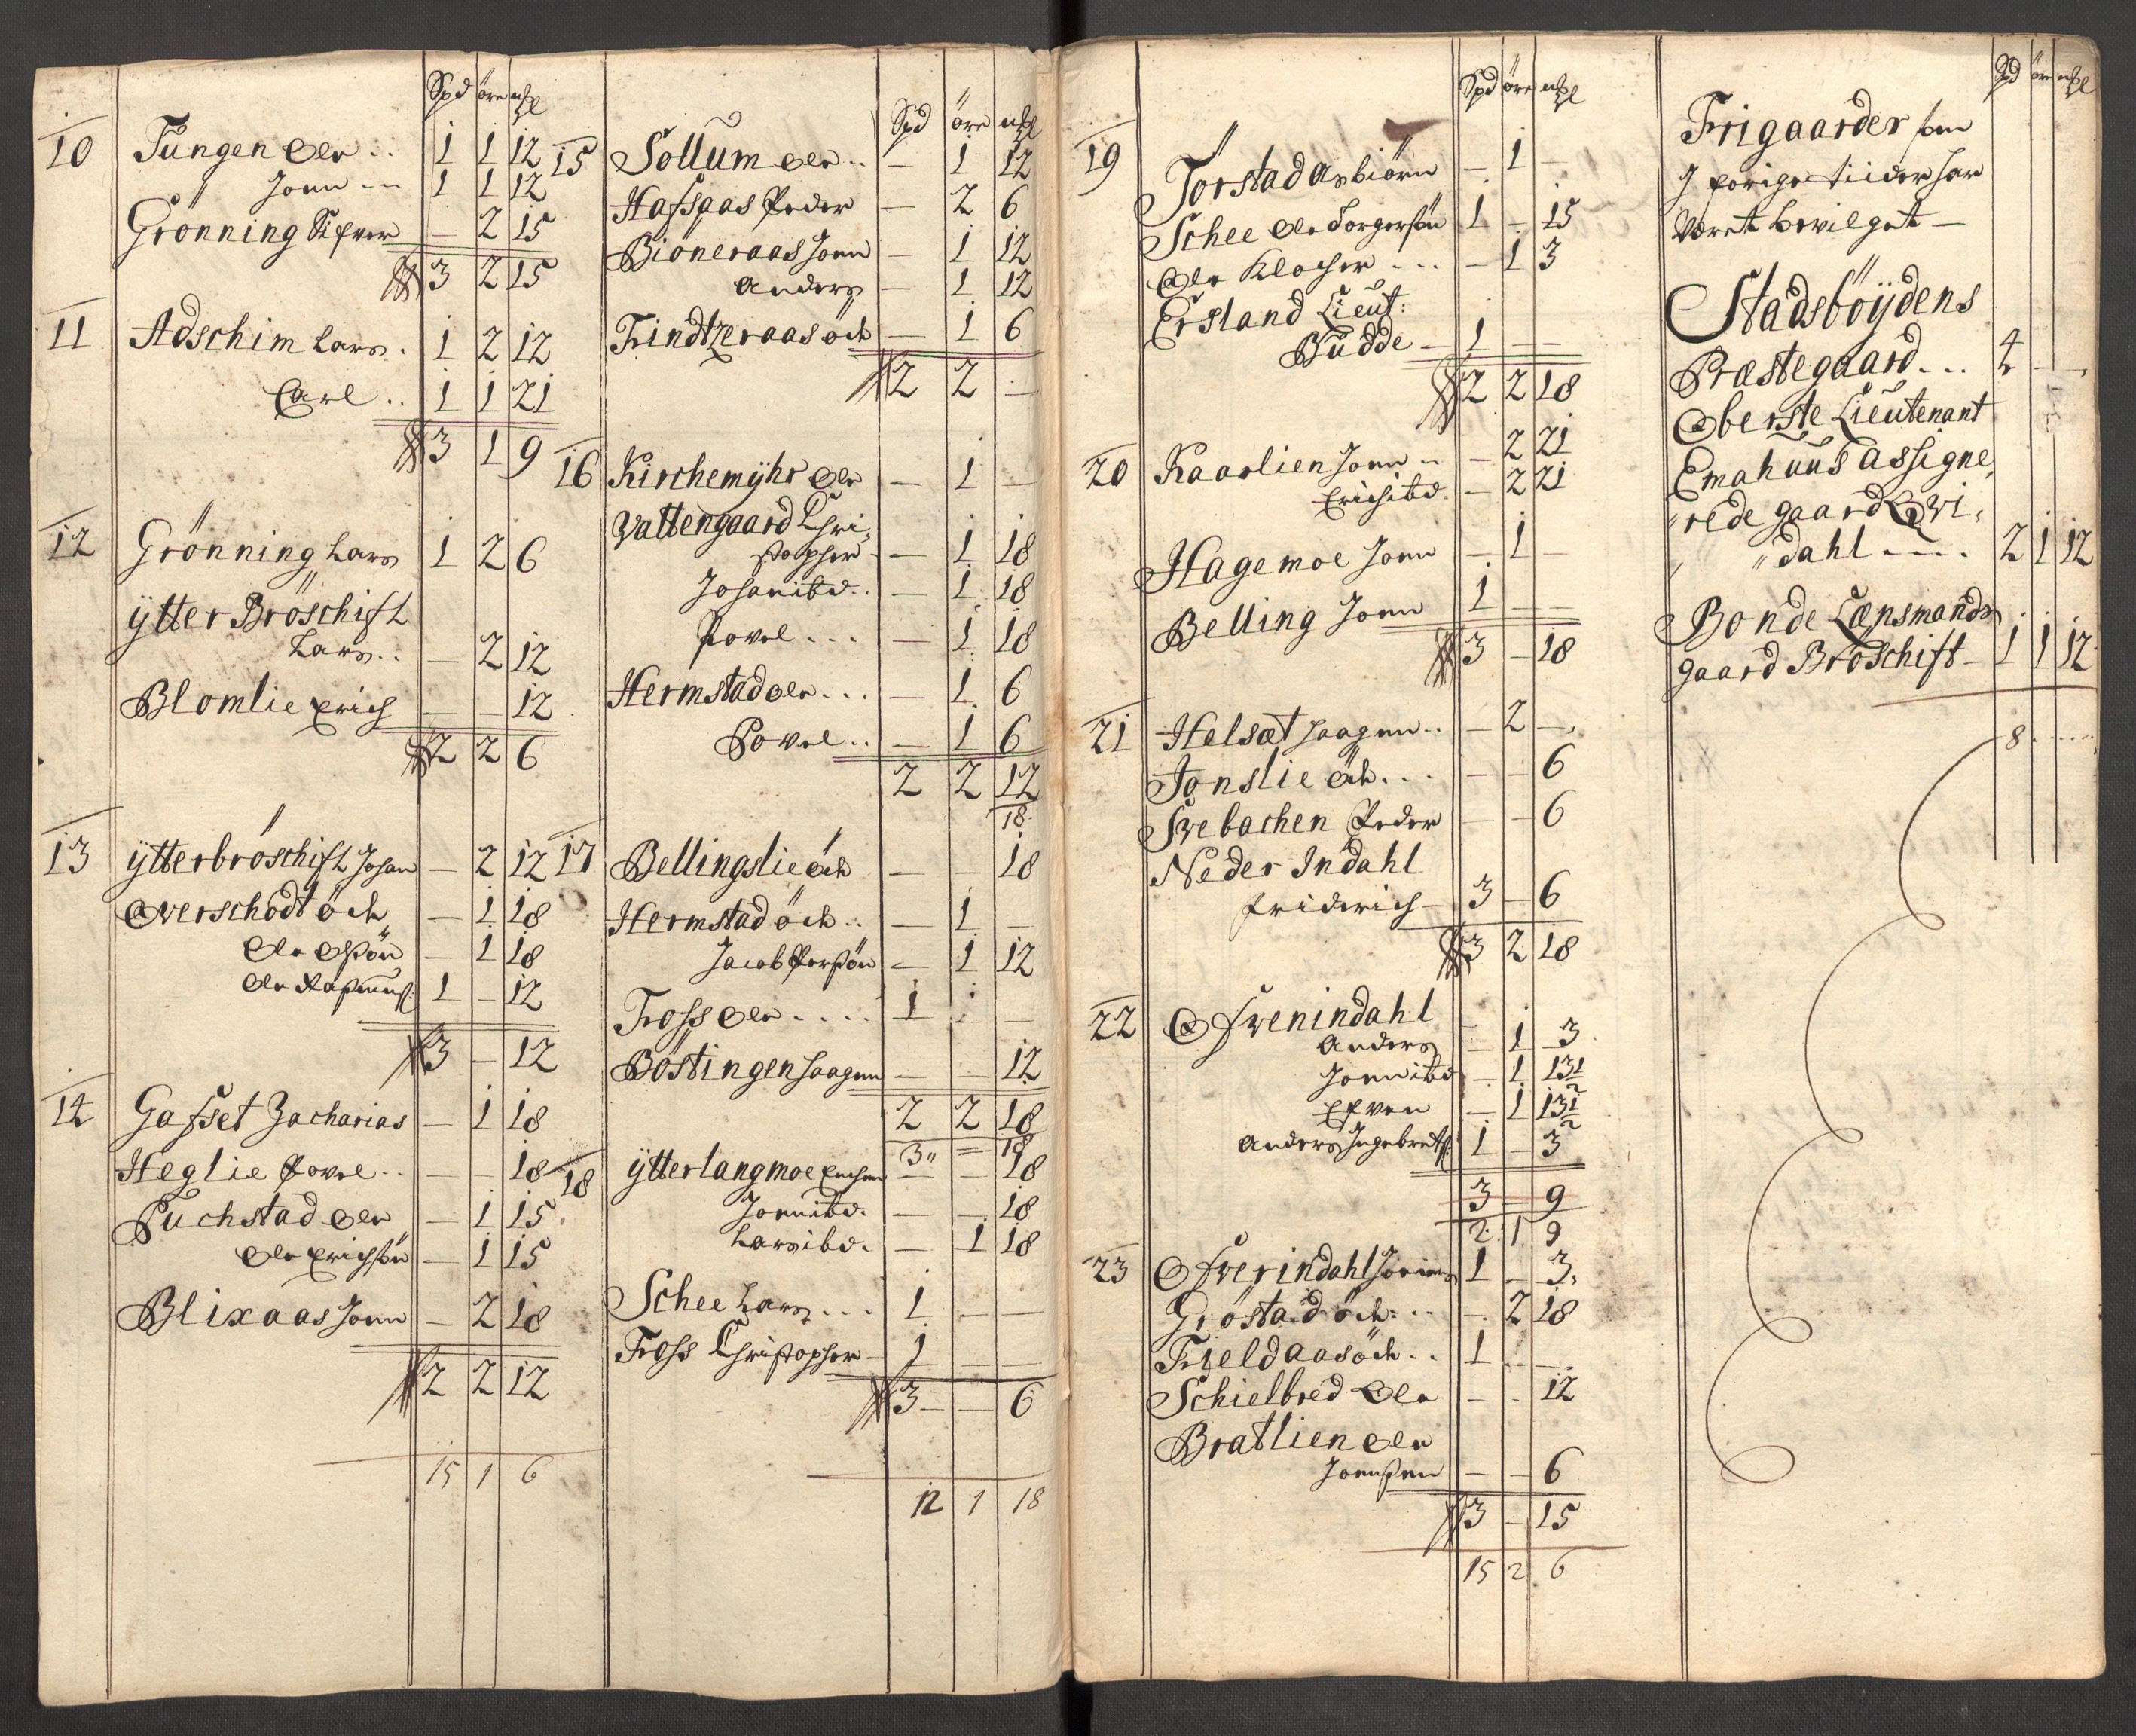 Spd öre mȝl
10 Tungen Ole .. 1 1 12
Jonn -- 1 1 12
Grönning Sifver – 2 15
3 2 15
11 Adschim Lars . 1 2 12
Carl .. 1 1 21
3 1 9
12 Grönning Lars 1 2 6
ÿtter Bröschift
Lars .. – 2 12
Blomlie Erich – – 12
2 2 6
13 ÿtterbröschift Johan – 2 12
Overschodt öch – 1 18
Ole Olsön – 1 18
Ole Rasmus: 1 – 12
3 – 12
14 Gafset Zacharias – 1 18
Heglie Povel .. – – 18
Puchstad Ole – 1 15
Ole Erichsön – 1 15
Blixaas Jonn – 2 18
2 2 12
15 1 6
Spd öre mȝl
15 Sollum Ole .. – 1 12
Hafsaas Peder – 2 6
Biöneraas Jonn – 1 12
Anders – 1 12
Trindtzeraas öch – 1 6
2 2 –
16 Kirchemÿhr Ole – 1 –
Vattengaard Chri-
stopher – 1 18
Johan ibd .. – 1 18
Povel ... – 1 18
Hermstad Ole ... – 1 6
Povel .. – 1 6
2 2 12
18
17 Bellingslie öch – – 18
Hermstad öch .. – 1 –
Jacob Persön – 1 12
Fross Ole .... 1 – –
Böstingen Haagen – – 12
2 2 18
3 – 18
18 ÿtterlangmoe – – 18
Jonn ibd. – – 18
Lars ibd. – 1 18
Schee Lars ... 1 – –
Fross Christopher 1 – –
3 – 6
12 1 18
Spd öre mȝl
19 Törstad Asbiörn – 1 –
Schee Ole Torgersön 1 – 15
Ole Klocher ... – 1 3
Ersland Lieut:
Budde – 1 – –
2 2 18
20 Kaarlien Jonn .. – 2 21
Erich ibd. – 2 21
Hagemoe Jonn – 1 –
Belling Jonn 1 – –
3 – 18
21 Helsæt Haagen .. – 2 –
Jonslie öch ... – – 6
Svebachen Peder – – 6
Neder Indahl
Friderich – 3 – 6
3 2 18
22 Ofwenindahl
Anders – 1 3
Jonn ibd – 1 13½
Efven – 1 13½
Anders Ingebrets: 1 – 3
3 – 9
2 1 9
23 Ofwerindahl 1 – 3
Gröstad öch: .. – 2 18
Fieldaas öch .. 1 – –
Schielbred Ole – – 12
Bratlien Ole
Joensen – – 6
3 – 15
15 2 6
Spd öre mȝl
Frigaarder som
J forige tiider har
Været bevilget –
Stadsböÿdens
Præstegaard ... 4 – –
Oberste Lieutenant
Emahuus assigne,
rede gaard Qvi,
dahl ---. 2 1 12
Bonde Lensmands
gaard Bröschift – 1 1 12
8 – –